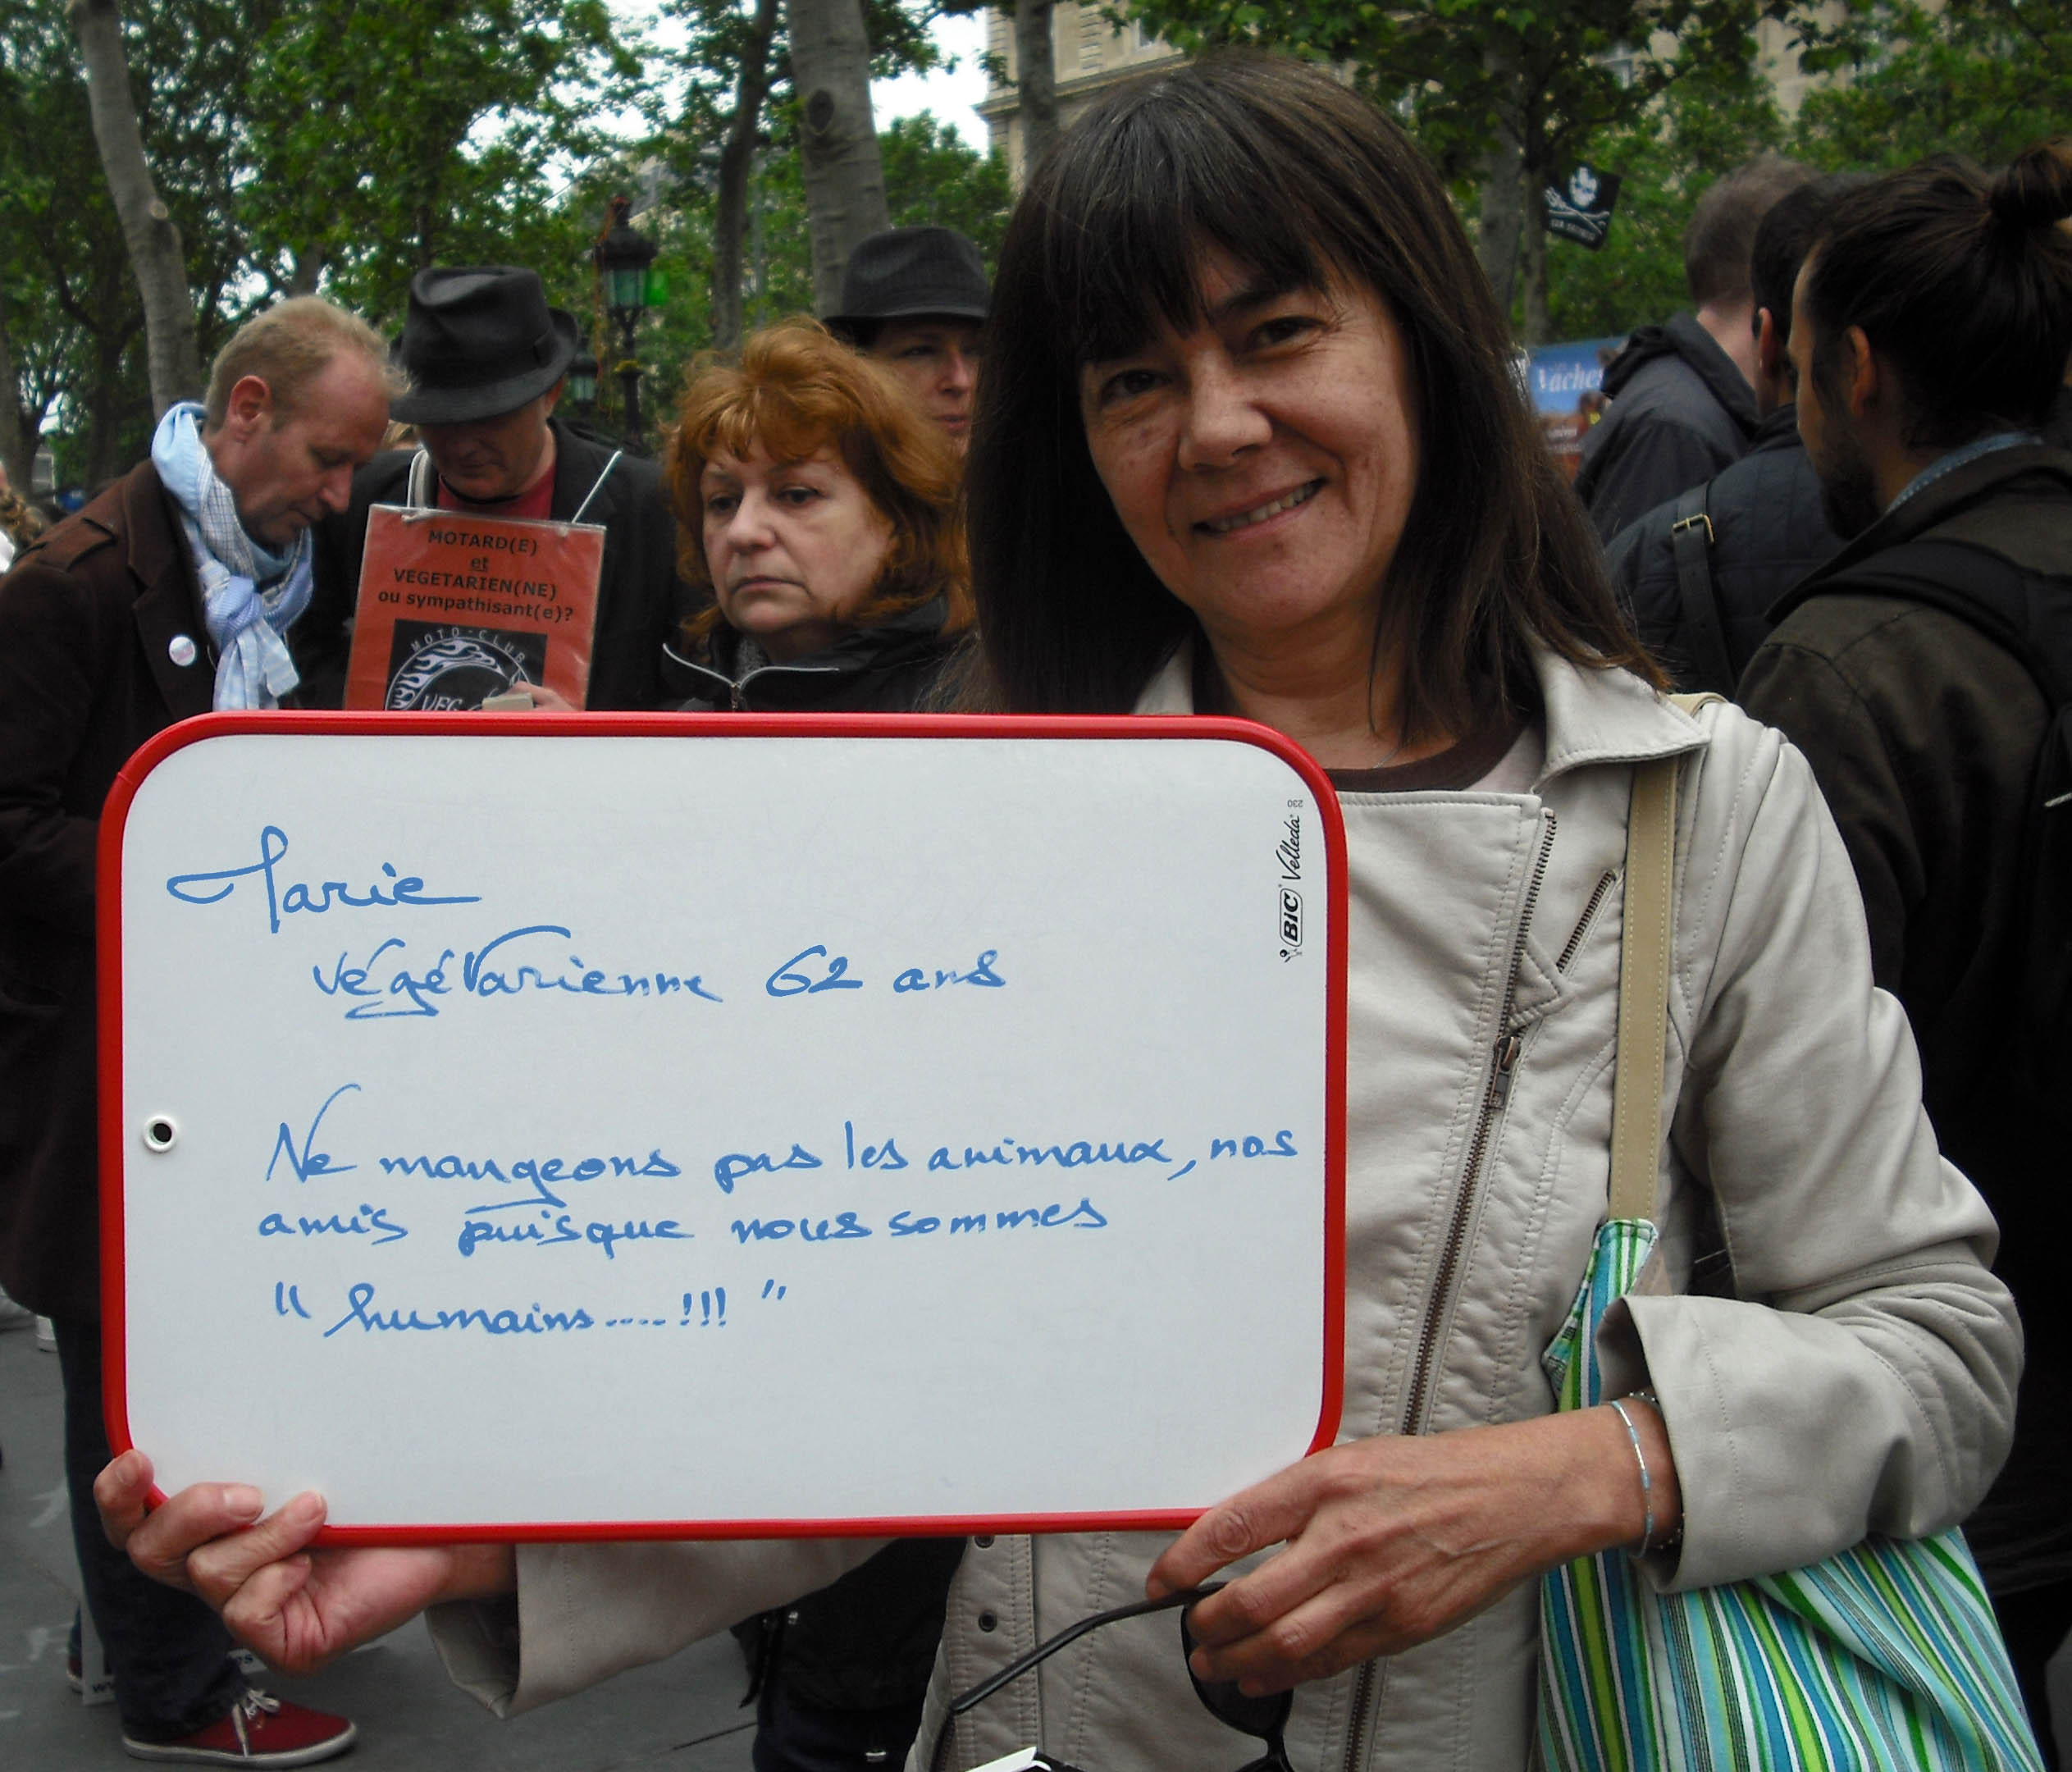 MOTARD(E)
et
VEGETARIEN(NE)
ou sympathisant(e)?
MOTO-CLUB
VEG
Vaches
BIC Velleda 230
Marie
végétarienne 62 ans
Ne mangeons pas les animaux, nos
amis puisque nous sommes
" humains.....!!! "